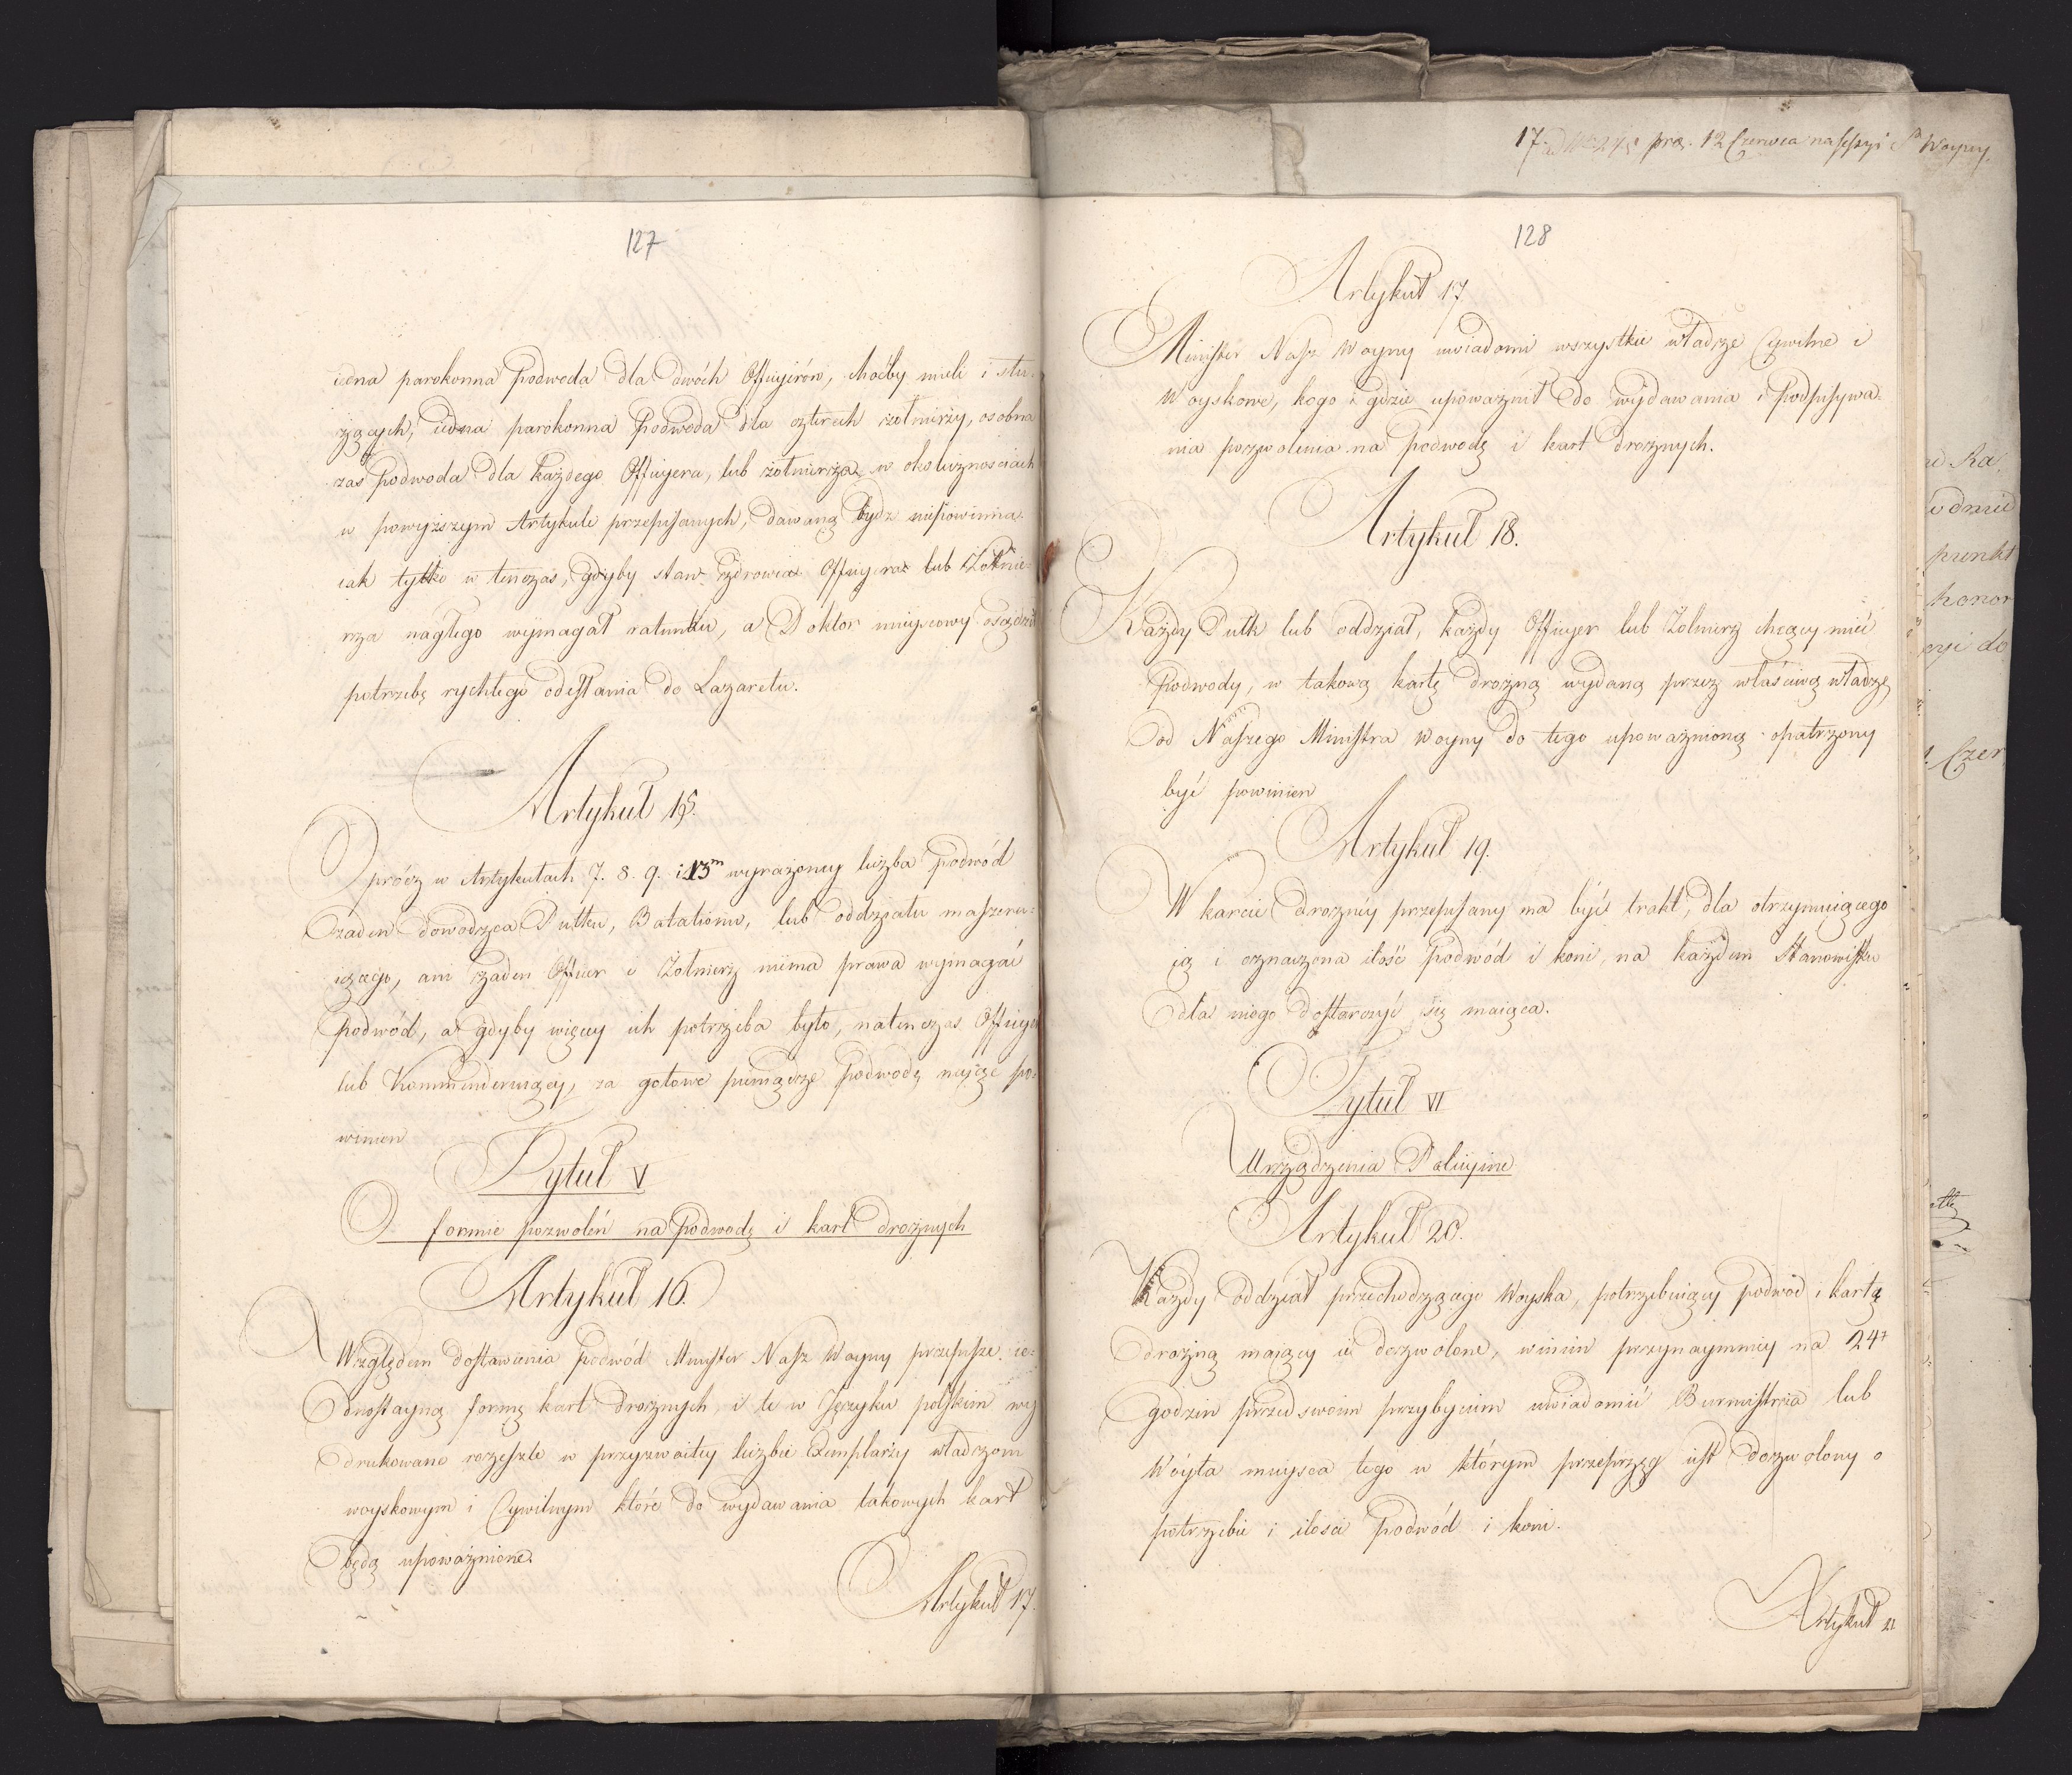 127
iedna parokonna Podwoda dla dwóch Officyerów, choćby mieli i słu-
żących, iedna parokonna Podwoda dla czterech żołnierzy, osobna
zaś Podwoda dla każdego Officyera, lub żołnierza w okolicznościach
w powyższym Artykule przepisanych, dawaną bydz niepowinna.
iak tylko w tenczas, gdyby stan zdrowia Officyera lub Żołnie-
rza nagłego wymagał ratunku, a Doktor mieyscowy osądził
potrzebę rychłego odesłania do Lazaretu.
Artykuł 15.
Oprócz w Artykułach 7. 8. 9. i 13m wyrażoney liczba Podwód
żaden dowodzca Pułku, Batalionu, lub oddziału maszeru-
iącego, ani żaden Officier i Żołnierz niema prawa wymagać
Podwód, a gdyby więcey ich potrzeba było, natenczas Officyer
lub Kommenderuiący, za gotowe pieniądze Podwodę nająć po-
winien
Tytuł V
O formie pozwoleń na Podwodę i kart drożnych
Artykuł 16.
Względem dostawienia Podwód Minister Nasz Woyny przepisze ie-
dnostayną formę kart drożnych, i te w Języku polskim wy
drukowane rozeszle w przyzwoitey liczbie Exemplarzy władzom
woyskowym i Cywilnym które do wydawania takowych kart
będą upoważnione.
Artykuł 17.
17. prez. 12 Czerwca Woyny.
128
Artykuł 17
Minister Nasz Woyny uwiadomi wszystkie władze Cywilne i
Woyskowe, kogo i gdzie upoważnił do wydawania i Podpisywa-
nia pozwolenia na podwodę i kart drożnych.
Artykuł 18.
Każdy Pułk lub oddział, każdy Officyer lub Żołnierz chcący mieć
Podwody, w takową kartę drożną wydaną przez właściwą władzę
od Naszego Ministra Woyny do tego upoważnioną opatrzony
być powinien
Artykuł 19.
W karcie drożney przepisany ma być trakt, dla otrzymuiącego
ią i oznaczona ilość Podwód i koni, na każdem Stanowisku
dla niego dostarczyć się maiąca.
Tytuł VI
Urządzenia Policyine
Artykuł 20.
Każdy oddział przechodzącego Woyska, potrzebuiący podwód i kartę
drożną maiący ie dozwolone, winien przynaymniey na 24
godzin przed swoim przybyciem uwiadomić Burmistrza lub
Woyta mieysca tego w którym przeprząg iest dozwolony o
potrzebie i ilości Podwód i koni.
Artykuł 21
punkt
honor
do
Czer